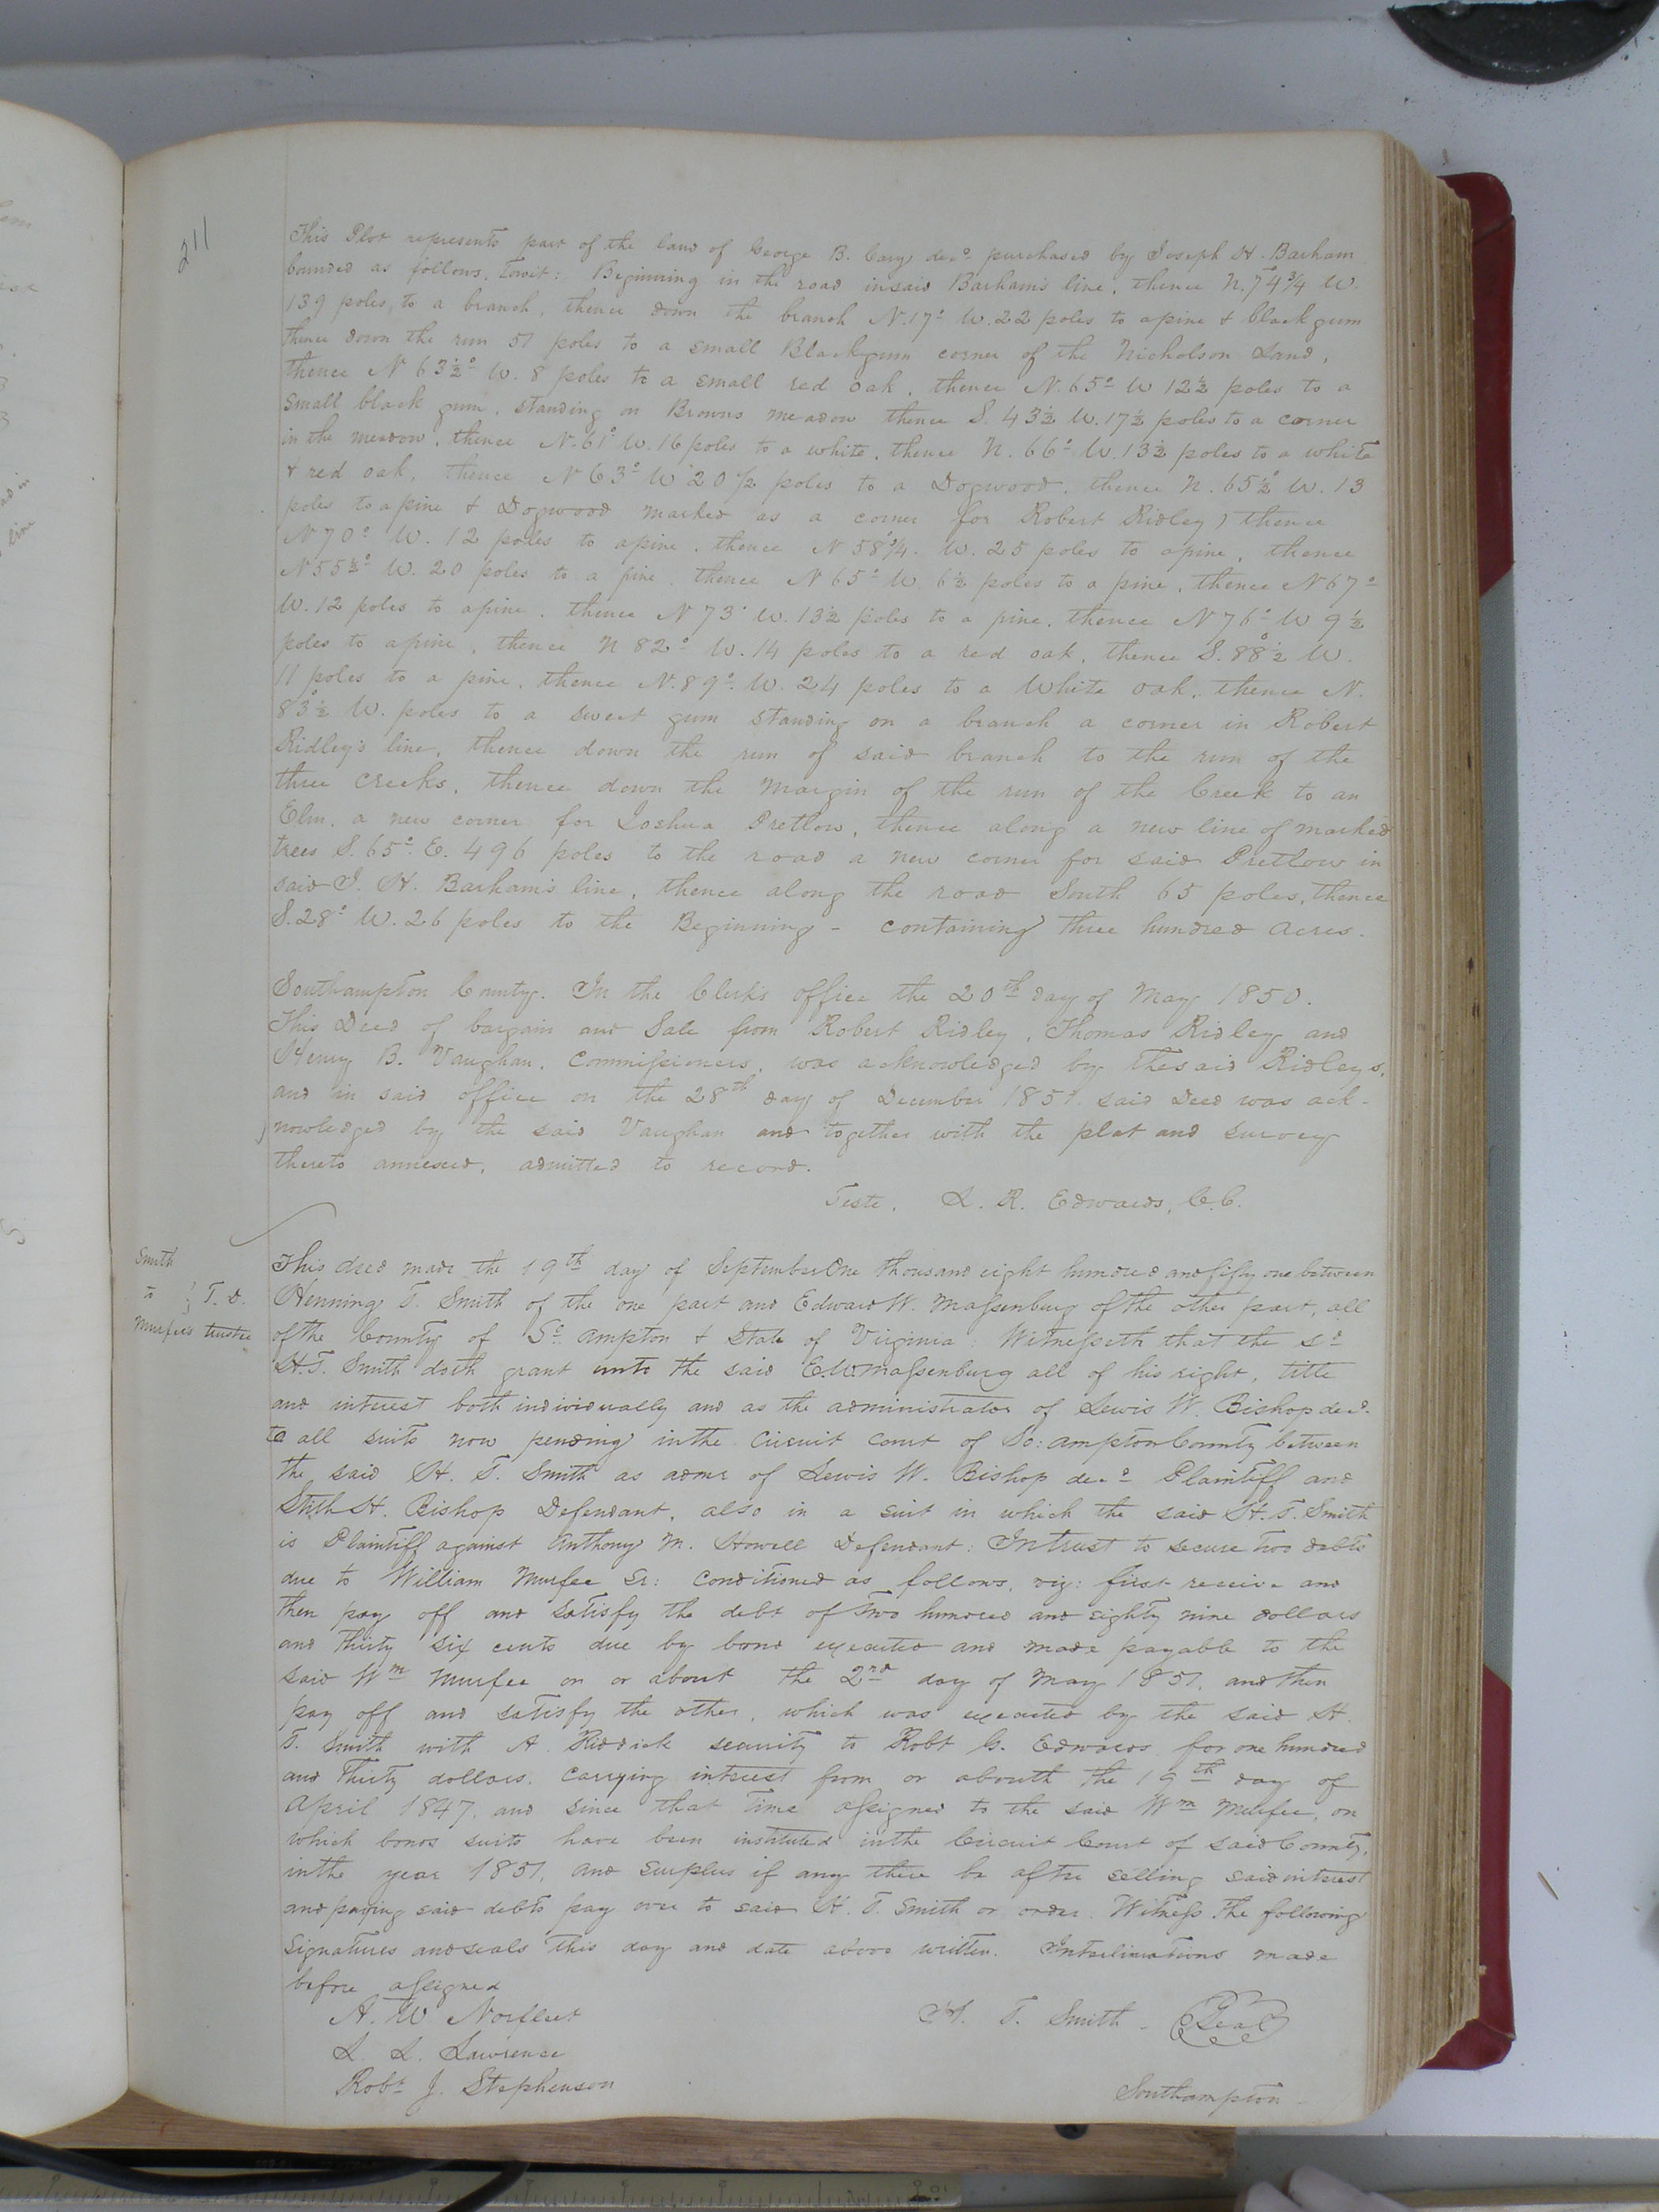 211
This Plot represents part of the land of George B. Cary decd purchased by Joseph H. Barham
bounded as follows, Towit: Beginning in the road in said Barham's line, thence N. 74 3/4 W.
139 poles, to a branch, thence down the branch N. 17° W. 22 poles to a pine & black gum
thence down the run 51 poles to a small Blackgum corner of the Nicholson Land,
thence N 63½° W. 8 poles to a small red oak, thence N. 65° W 12½ poles to a
small black gum, standing on Browns meadow thence S. 43½ W. 17½ poles to a corner
in the meadow, thence N. 61° W. 16 poles to a white, thence N. 66° W. 13½ poles to a white
& red oak, thence N 63° W 20 1/2 poles to a Dogwood, thence N. 65½° W. 13
poles to a pine & Dogwood marked as a corner for Robert Ridley) thence
N 70° W. 12 poles to a pine, thence N 58°3/4. W. 25 poles to a pine, thence
N 55½° W. 20 poles to a pine, thence N 65° W. 6½ poles to a pine, thence N 67°
W. 12 poles to a pine, thence N 73° W. 13½ poles to a pine, thence N 76° W 9½
poles to a pine, thence N 82° W. 14 poles to a red oak, thence S. 88°½ W.
11 poles to a pine, thence N. 89° W. 24 poles to a White oak, thence N.
83°½ W. poles to a sweet gum standing on a branch a corner in Robert
Ridley's line, thence down the run of said branch to the run of the
three creeks, thence down the margin of the run of the Creek to an
Elm, a new corner for Joshua Pretlow, thence along a new line of marked
trees S. 65° E. 496 poles to the road a new corner for said Pretlow in
said J. H. Barham's line, thence along the road South 65 poles, thence
S. 28° W. 26 poles to the Beginning - containing three hundred acres.
Southampton County. In the Clerk's office the 20th day of May 1850.
This Deed of bargain and Sale from Robert Ridley, Thomas Ridley and
Henry B. Vaughan, Commissioners, was acknowledged by the said Ridleys,
and in said office on the 28th day of December 1851 said Deed was ack-
nowledged by the said Vaughan and together with the plat and survey
thereto annexed, admitted to record.
Teste, L. R. Edwards, C.C.
Smith
to } T. D.
Murfee's trustee
This deed made the 19th day of September One thousand eight hundred and fifty one between
Henning T. Smith of the one part and Edward W. Massenburg of the other part, all
of the County of So. ampton & State of Virginia: Witnesseth that the sd
H. T. Smith doth grant unto the said E. W. Massenburg all of his right, title
and interest both individually and as the administrator of Lewis W. Bishop decd.
to all suits now pending in the Circuit Court of So: ampton County between
the said H. T. Smith as admr of Lewis W. Bishop decd Plaintiff and
Stith H. Bishop Defendant, also in a suit in which the said H. T. Smith
is Plaintiff against Anthony M. Howell Defendant: In trust to secure two debts
due to William Murfee Sr: conditioned as follows, viz: first receive and
then pay off and satisfy the debt of Two hundred and eighty nine dollars
and thirty six cents due by bond executed and made payable to the
said Wm Murfee on or about the 2nd day of May 1851, and then
pay off and satisfy the other, which was executed by the said H.
T. Smith with A. Riddick security to Robt G. Edwards for one hundred
and Thirty dollars. Carrying interest from or abouth the 19th day of
April 1847, and since that time assigned to the said Wm Murfee, on
which bonds suits have been instituted in the Circuit Court of said County,
in the year 1851, and surplus if any there be after selling said interest
and paying said debts pay over to said H. T. Smith or order. Witness the following
signatures and seals this day and date above written. Interlineations made
before assigned
A. W Norfleet H. T. Smith - Seal
L. L. Lawrence
Robt J. Stephenson
Southampton